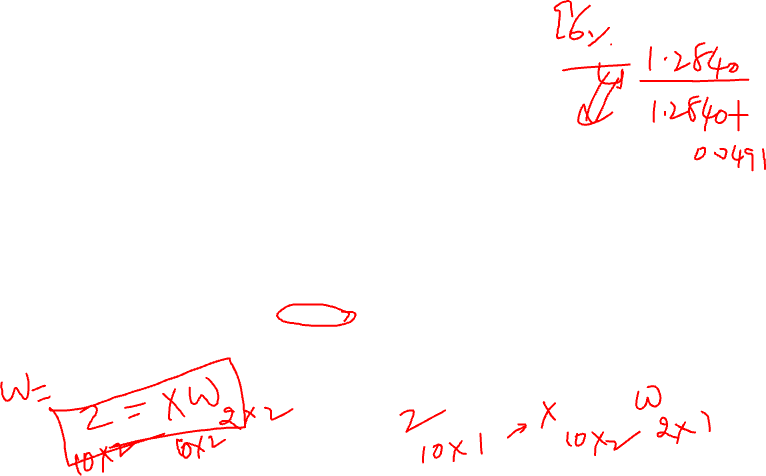 96%
1.2840
1.2840+
0.0491
W=
Z = XW 2x2
10x2 10x2
Z 10x1 → X 10x2 W 2x1